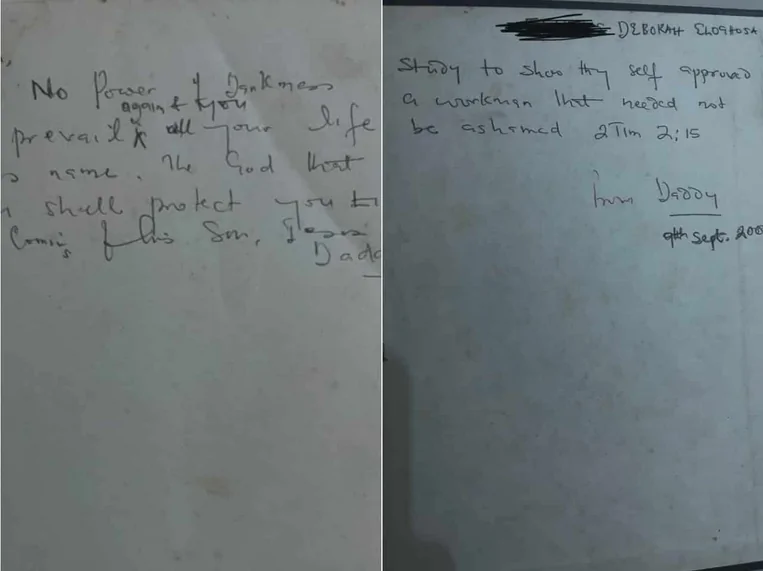 No Power of Darkness
against you
prevail all your life
name. The God that
shall protect you
Coming of his Son, Jesus
Dadd
DEBORAH ELOGHOSA
Study to show thy self approved
a workman that needed not
be ashamed 2Tim 2:15
from Daddy
9th Sept. 200